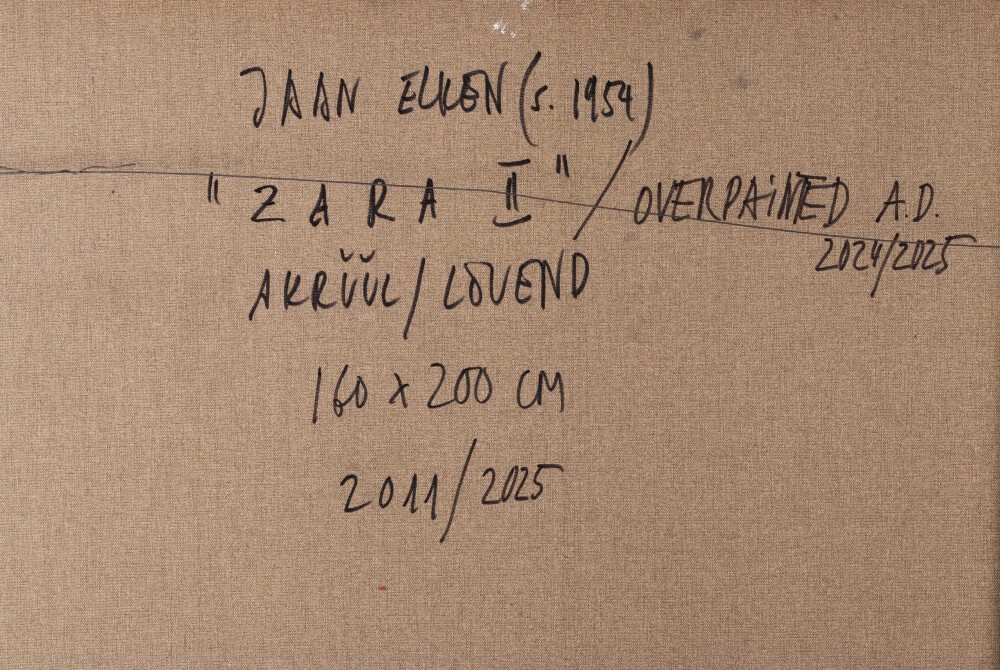 JAAN ELKEN (s. 1954)
"ZARA II" / OVERPAINED A.D.
2024/2025
AKRÜÜL / LÕUEND
160 x 200 CM
2011/2025